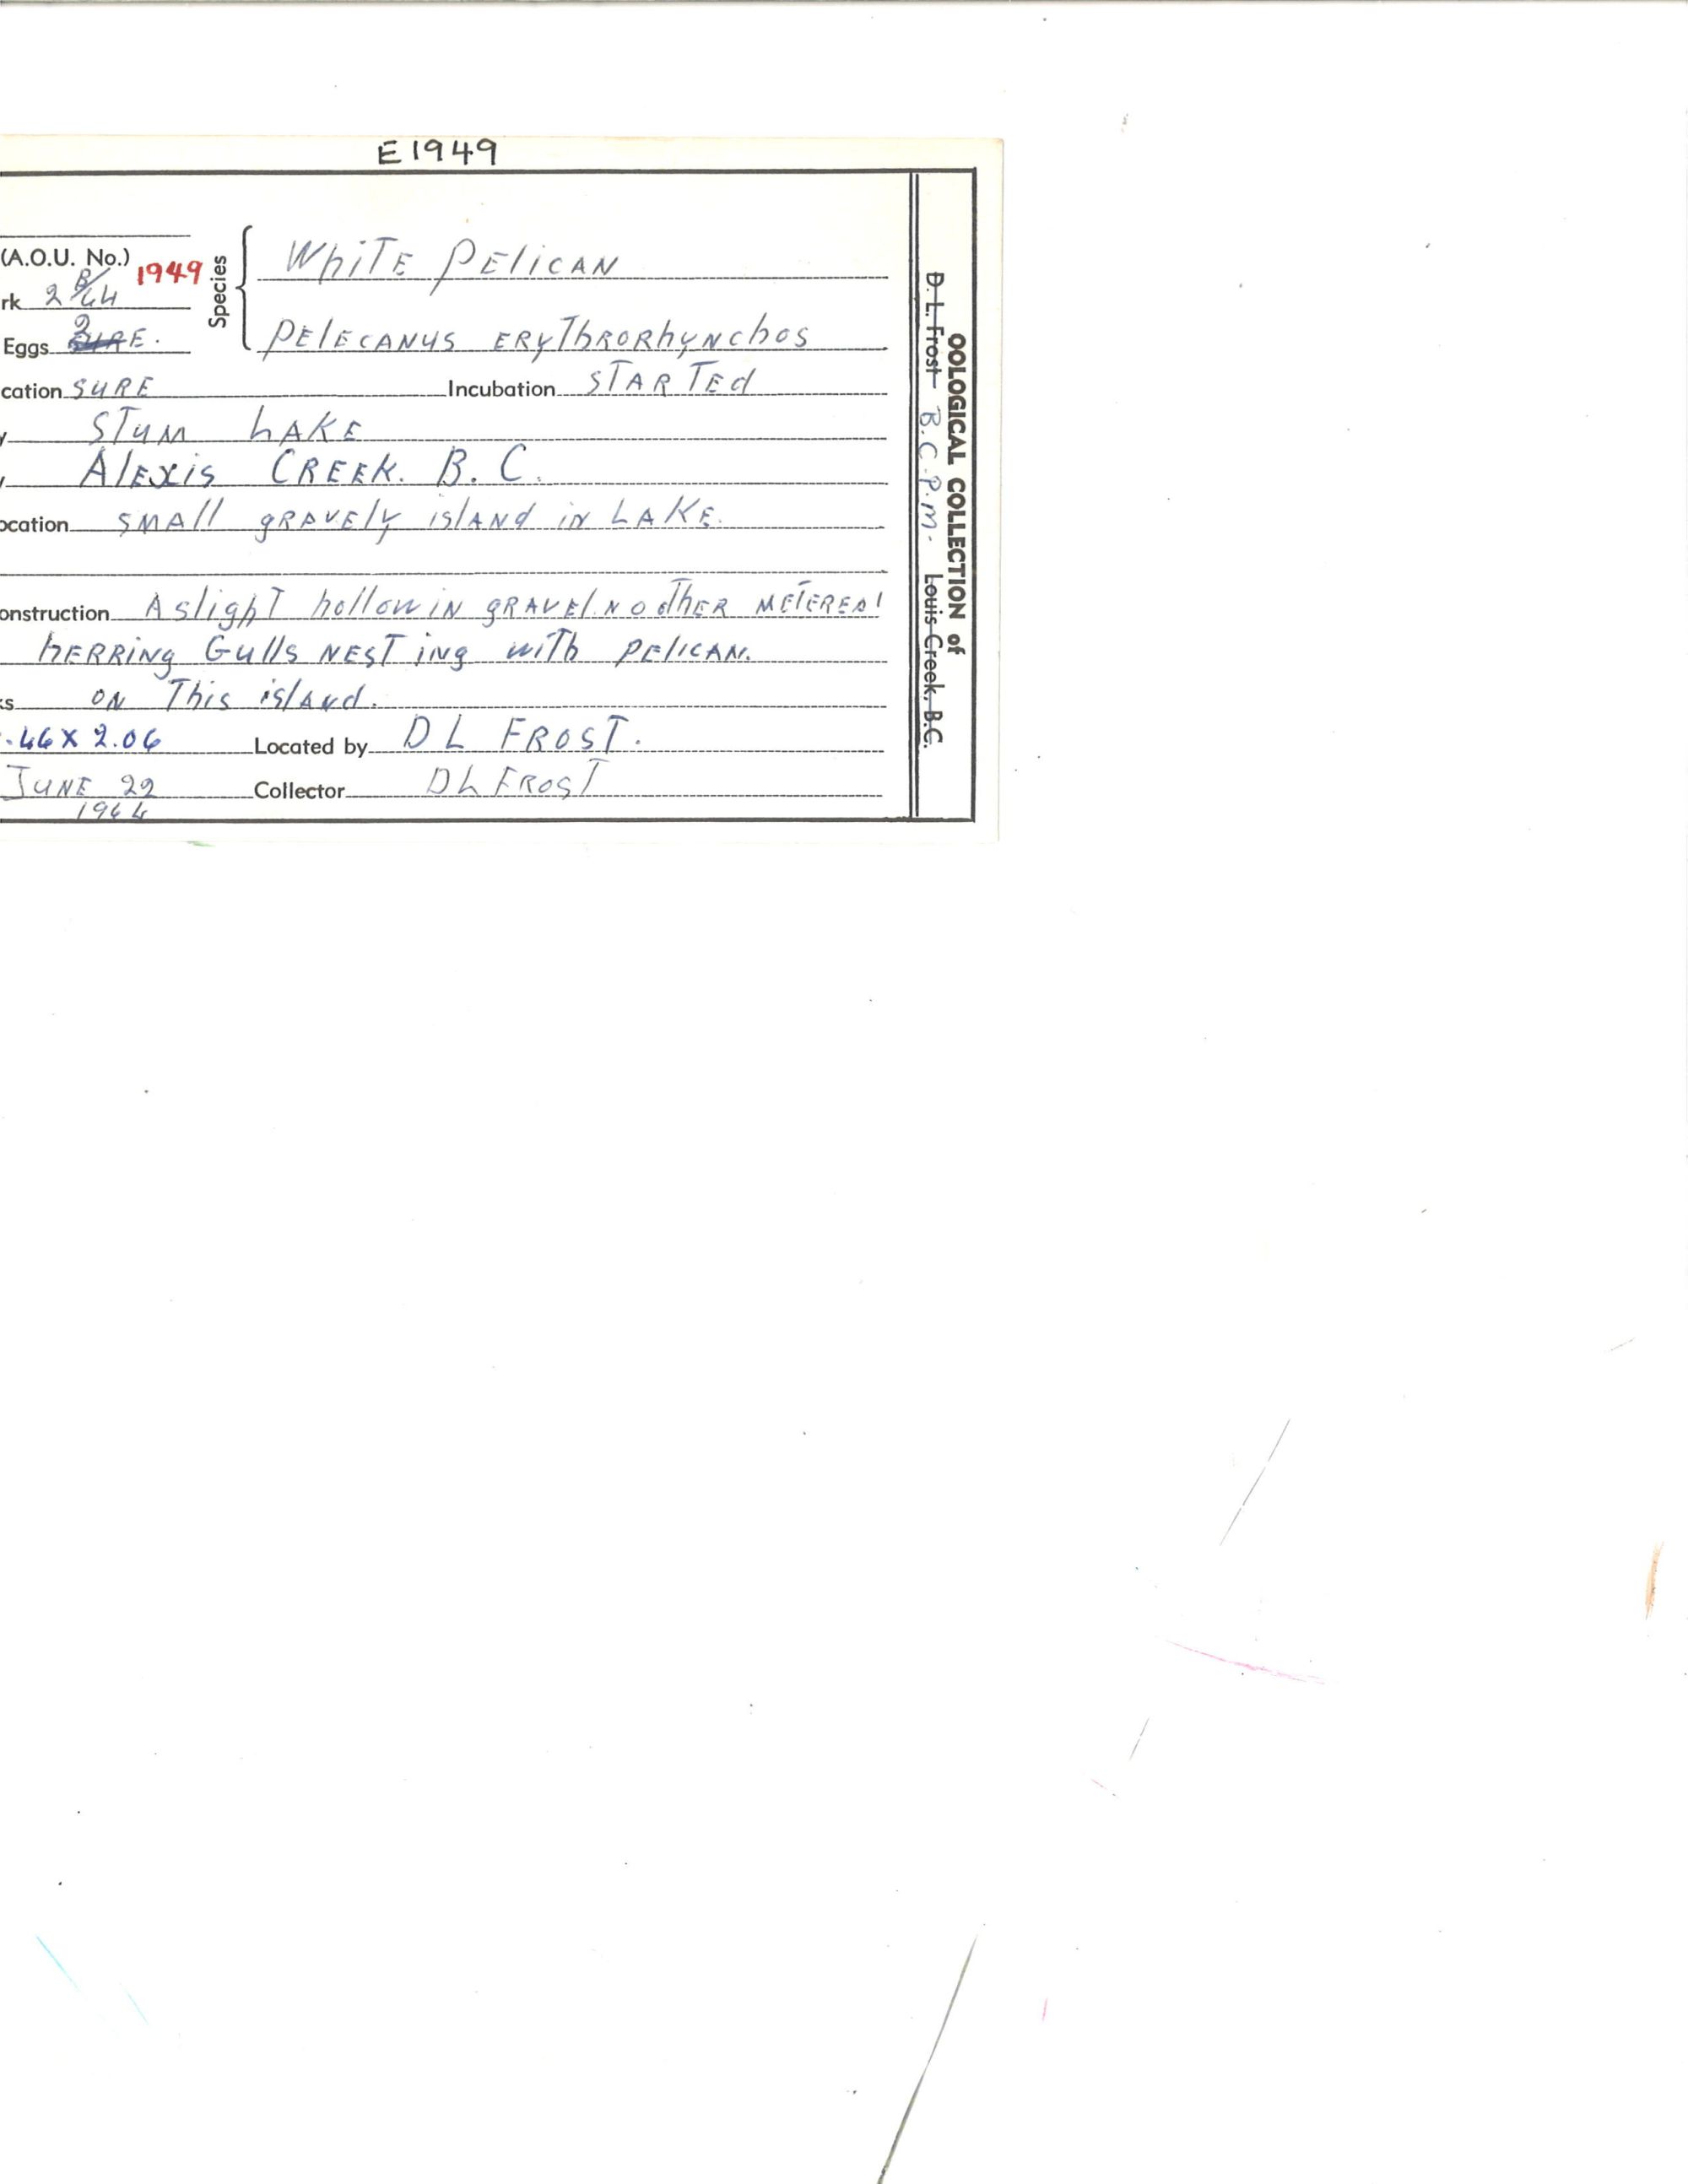 E1949
(A.O.U. No.) 1949
Species
White Pelican
rk 2 B/64
Eggs 2
Pelecanus Erythrorhynchos
cation SURE Incubation STARTED
STUM LAKE
Alexis CREEK. B.C.
ocation small gravely island in LAKE.
onstruction A slight hollow in gravel. No other metereal
herring Gulls nesting with pelican.
s on This island.
.46 X 2.06 Located by D L FROST.
JUNE 22 Collector D L FROST
1964
OOLOGICAL COLLECTION of
D. L. Frost B.C.P.M. Louis Creek, B.C.